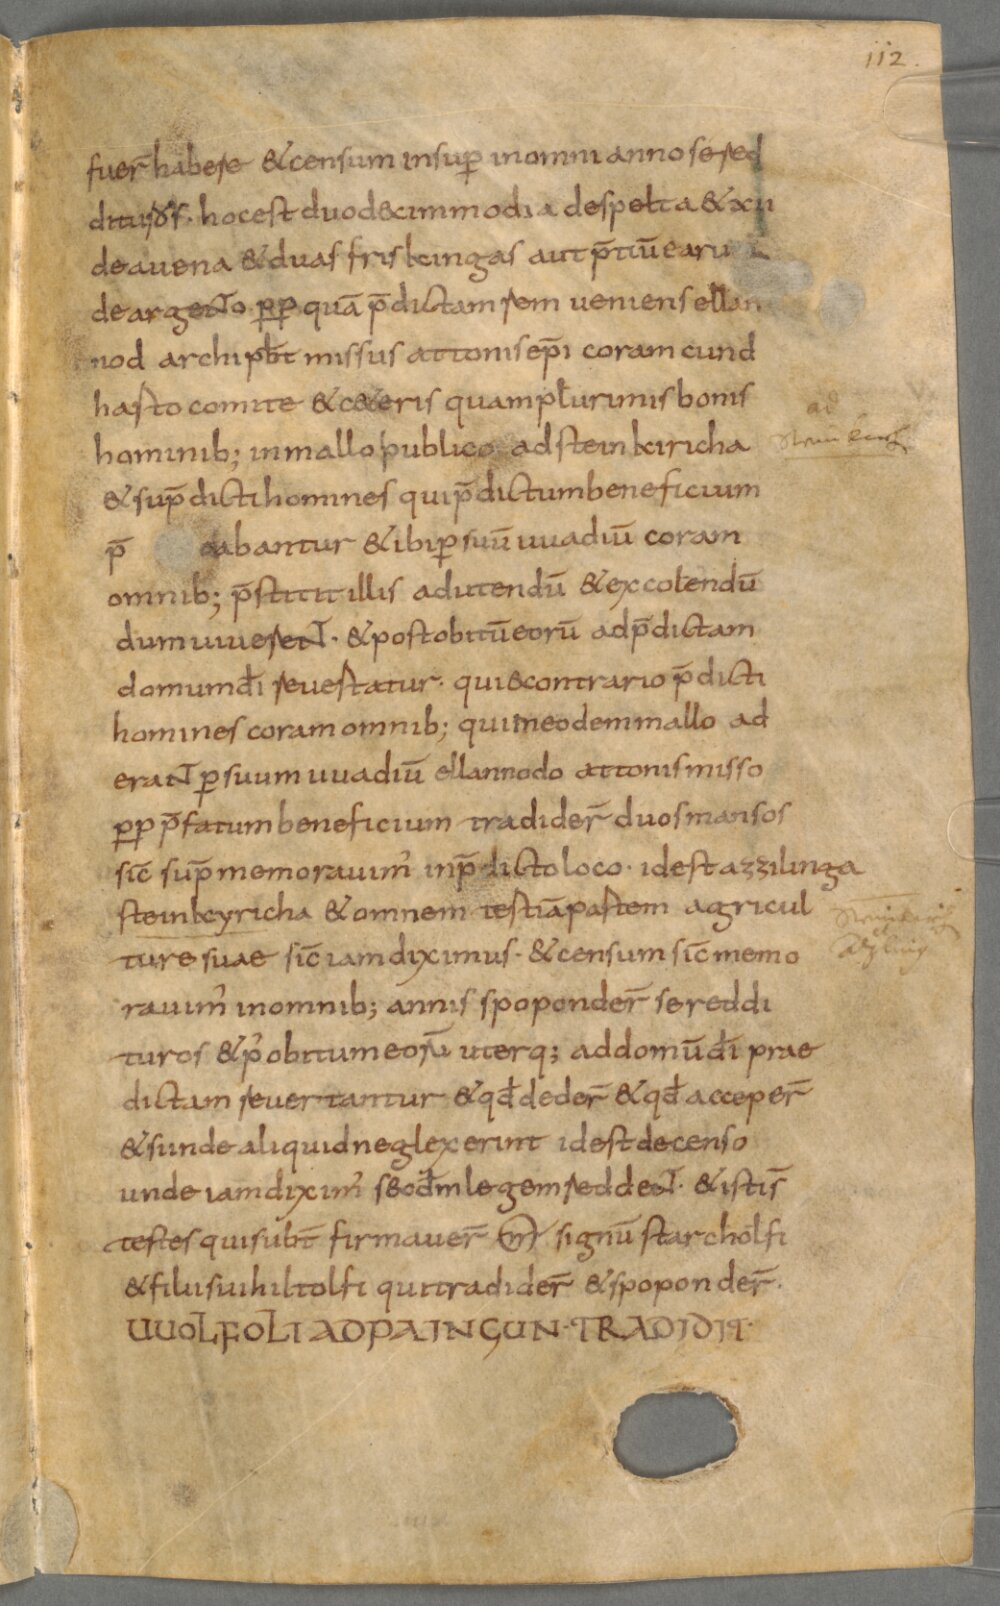 112.
fuer̄ habere &censum insup̱ inomni anno sered
dituros. hocest duodecimmodia despelta &xii
deauena &duas friskingas aut p̄tiū earū
deargento. pp quā p̄dictamrem ueniensellan
nod archipb̄t missus attonisep̄i coram cund
hasto comite &c&eris quamplurimisbonis
hominib; inmallopublico adsteinkiricha
ad
&sup̄dictihomines quip̄dictumbeneficium
p̄ abantur &ibip̱suū uuadiū coram
omnib; p̄stitit illis adutendū &excolendū
dumuiuerent. &postobitūeorū adp̄dictam
domumdī reuertatur. qui&contrario p̄dicti
homines coramomnib; quiineodemmallo ad
erant p̱suum uuadiū ellannodo attonismisso
pp p̄fatumbeneficium tradider̄ duosmansos
sic̄ sup̄memorauim᾽ inp̄dictoloco. idest azzilinga
steinkyricha &omnem tertiāpartem agricul
ture suae sic̄ iamdiximus. &censum sic̄ memo
rauim᾽ inomnib; annis sponponder̄ sereddi
turos &p᾽obitumeorū uterq; addomūdī prae
dictam reuertantur &qd̄ deder̄ &qd̄ acceper̄
&siunde aliquidneglexerint idestdecenso
unde iamdixim᾽ s&odm̄legemreddent. &istis̄
testes quisubt̄ firmauer̄ signū starcholfi
&filiisuihiltolfi quitradider̄ &spoponder̄.
UUOLFOLT ADPAINGUN·TRADIDIT·